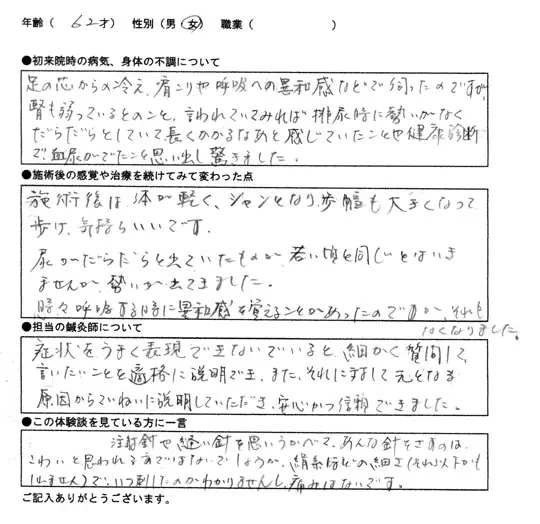 年齢（ 62才） 性別（男 女） 職業（ ）
●初来院時の病気、身体の不調について
足の芯からの冷え、肩こりや呼吸への異和感などで伺ったのですが、
腎も弱っているとのこと、言われていてみれば排尿時に勢いがなく
だらだらとしていて長くかかるなあと感じていたことや健康診断
で、血尿がでたこと思い出し驚きました。
●施術後の感覚や治療を続けてみて変わった点
施術後は、体が軽く、シャンとなり、歩幅も大きくなって
歩け、気持ちいいです。
尿がだらだらと出ていたものが、若い頃と同じとはいき
ませんが、勢いが出てきました。
時々呼吸する時に異和感を覚えることがあったのですが、それも
なくなりました。
●担当の鍼灸師について
症状をうまく表現できないでいると、細かく質問して、
言いたいことを適格に説明でき、また、それにまして元となる
原因からていねいに説明していただき、安心かつ信頼できました。
●この体験談を見ている方に一言
注射針や縫い針を思いうかべて、あんな針をさすのは、
こわいと思われる方ではないでしょうが、絹糸ほどの細さ（それ以下かも
しれません）で、いつ刺したのかわかりませんし、痛みはないです。
ご記入ありがとうございます。